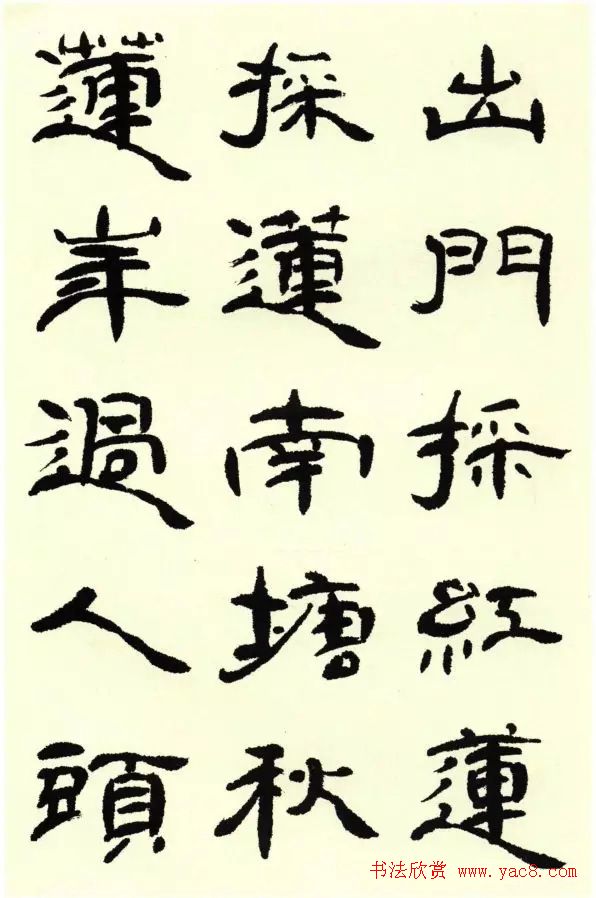 出門採紅蓮
採蓮南塘秋
蓮華過人頭
书法欣赏 www.yac8.com